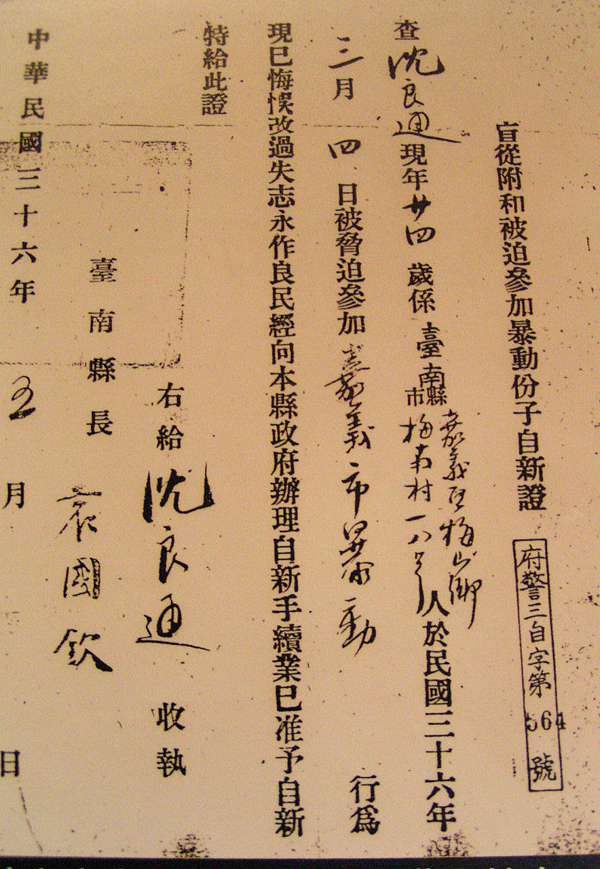 盲從附和被迫參加暴動份子自新證
府警三自字第564號
查沈良通現年廿四歲係臺南縣市嘉義區梅山鄉梅南村一八号人於民國三十六年
三月四日被脅迫參加嘉義市暴動行為
現已悔悞改過失志永作良民經向本縣政府辦理自新手續業已准予自新
特給此證
右給沈良通收執
臺南縣長袁國欽
中華民國三十六年五月日